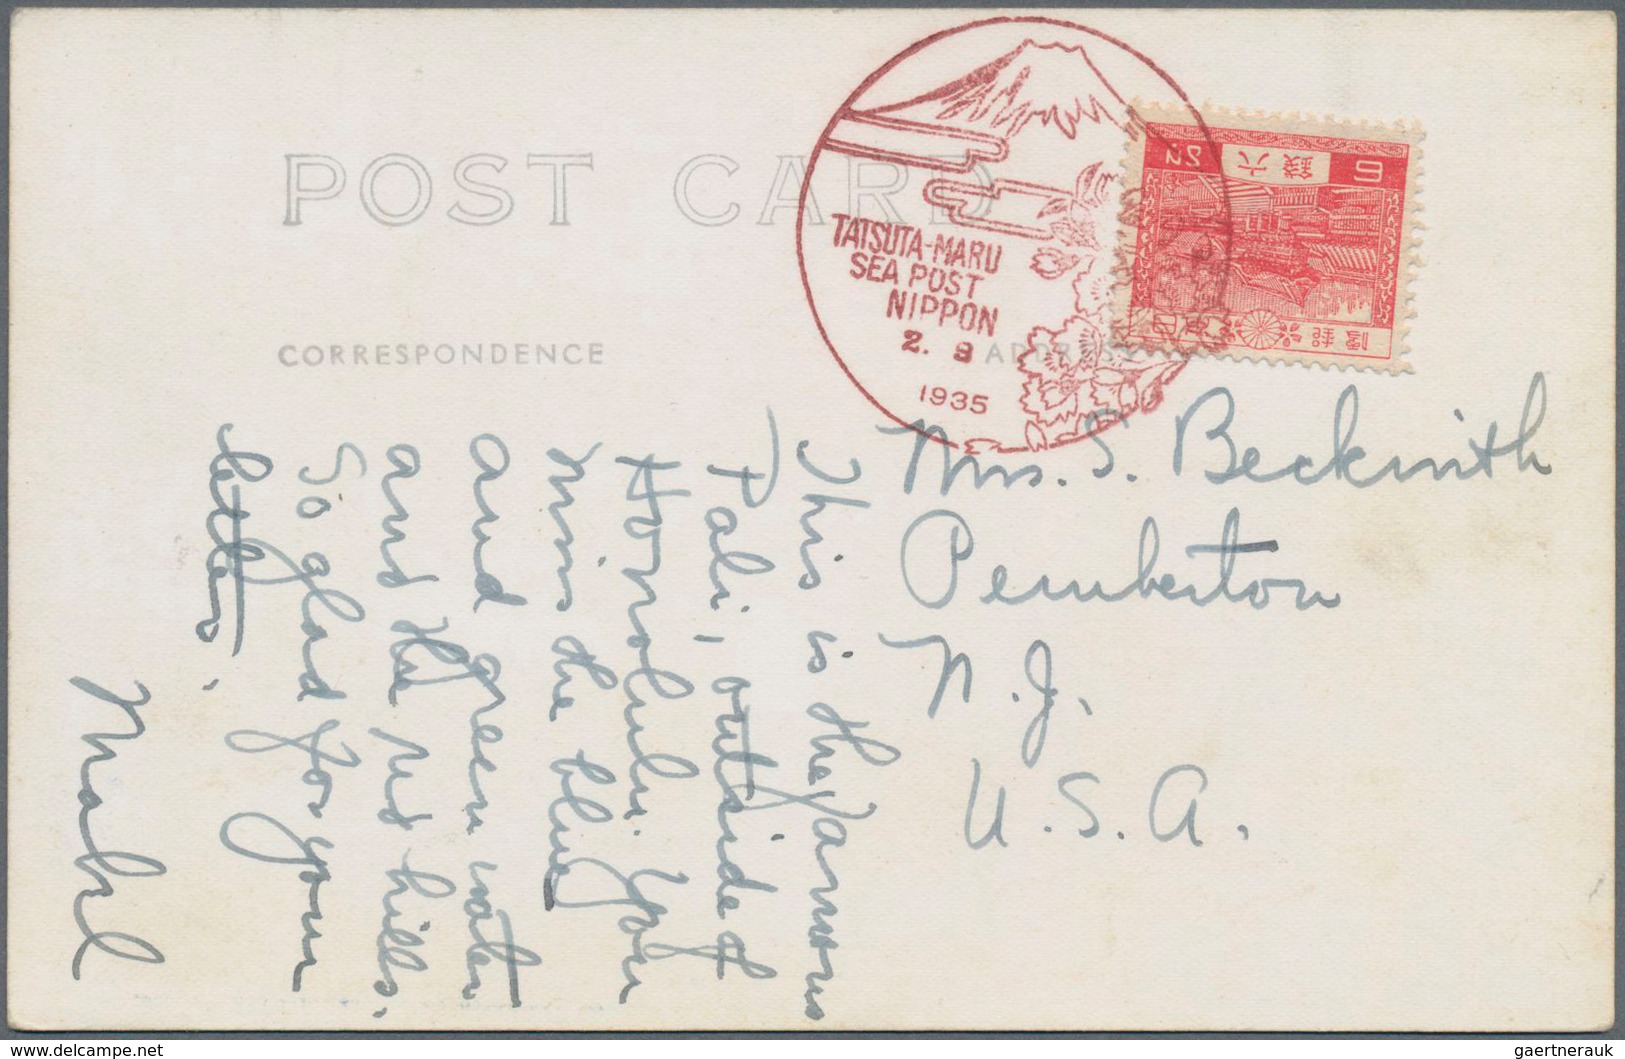 POST CARD
CORRESPONDENCE
ADDRESS
TATSUTA-MARU
SEA POST
NIPPON
2. 9
1935
6
六銭
Sn
Mrs. S. Beckwith
Pemberton
N. J.
U. S. A.
This is the famous
Pali, outside of
Honolulu. You
miss the blue
and green water
and the red hills.
So glad for your
letter.
Mabel
www.delcampe.net
gaertnerauk